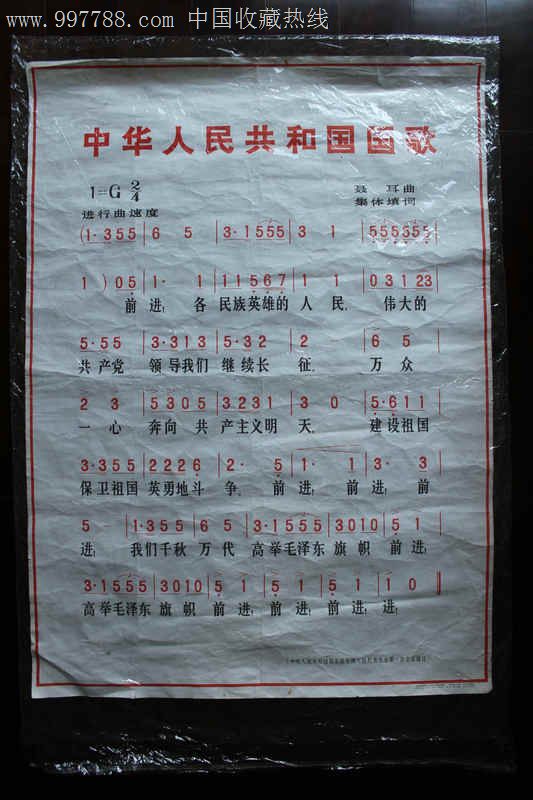 www.997788.com 中国收藏热线
中华人民共和国国歌
1=G 2/4
聂耳曲
进行曲速度
集体填词
(1·355 | 6 5 | 3·1555 | 3 1 | 555555 |
1 ) 05 | 1· 1 | 11567 | 1 1 | 03123
前进! 各民族英雄的人民, 伟大的
5·55 | 3·313 | 5·32 | 2 — | 6 5
共产党 领导我们 继续长 征, 万众
2 3 | 5305 | 3231 | 3 0 | 5·611
一心 奔向共产主义明天, 建设祖国
3·355 | 2226 | 2· 5 | 1· 1 | 3· 3
保卫祖国 英勇地斗争。 前进! 前进! 前
5 — | 1·355 | 6 5 | 3·1555 | 3010 | 5 1
进! 我们千秋万代 高举毛泽东旗帜 前进!
3·1555 | 3010 | 5 1 | 5 1 | 5 1 | 1 0 ‖
高举毛泽东旗帜 前进! 前进! 前进! 进!